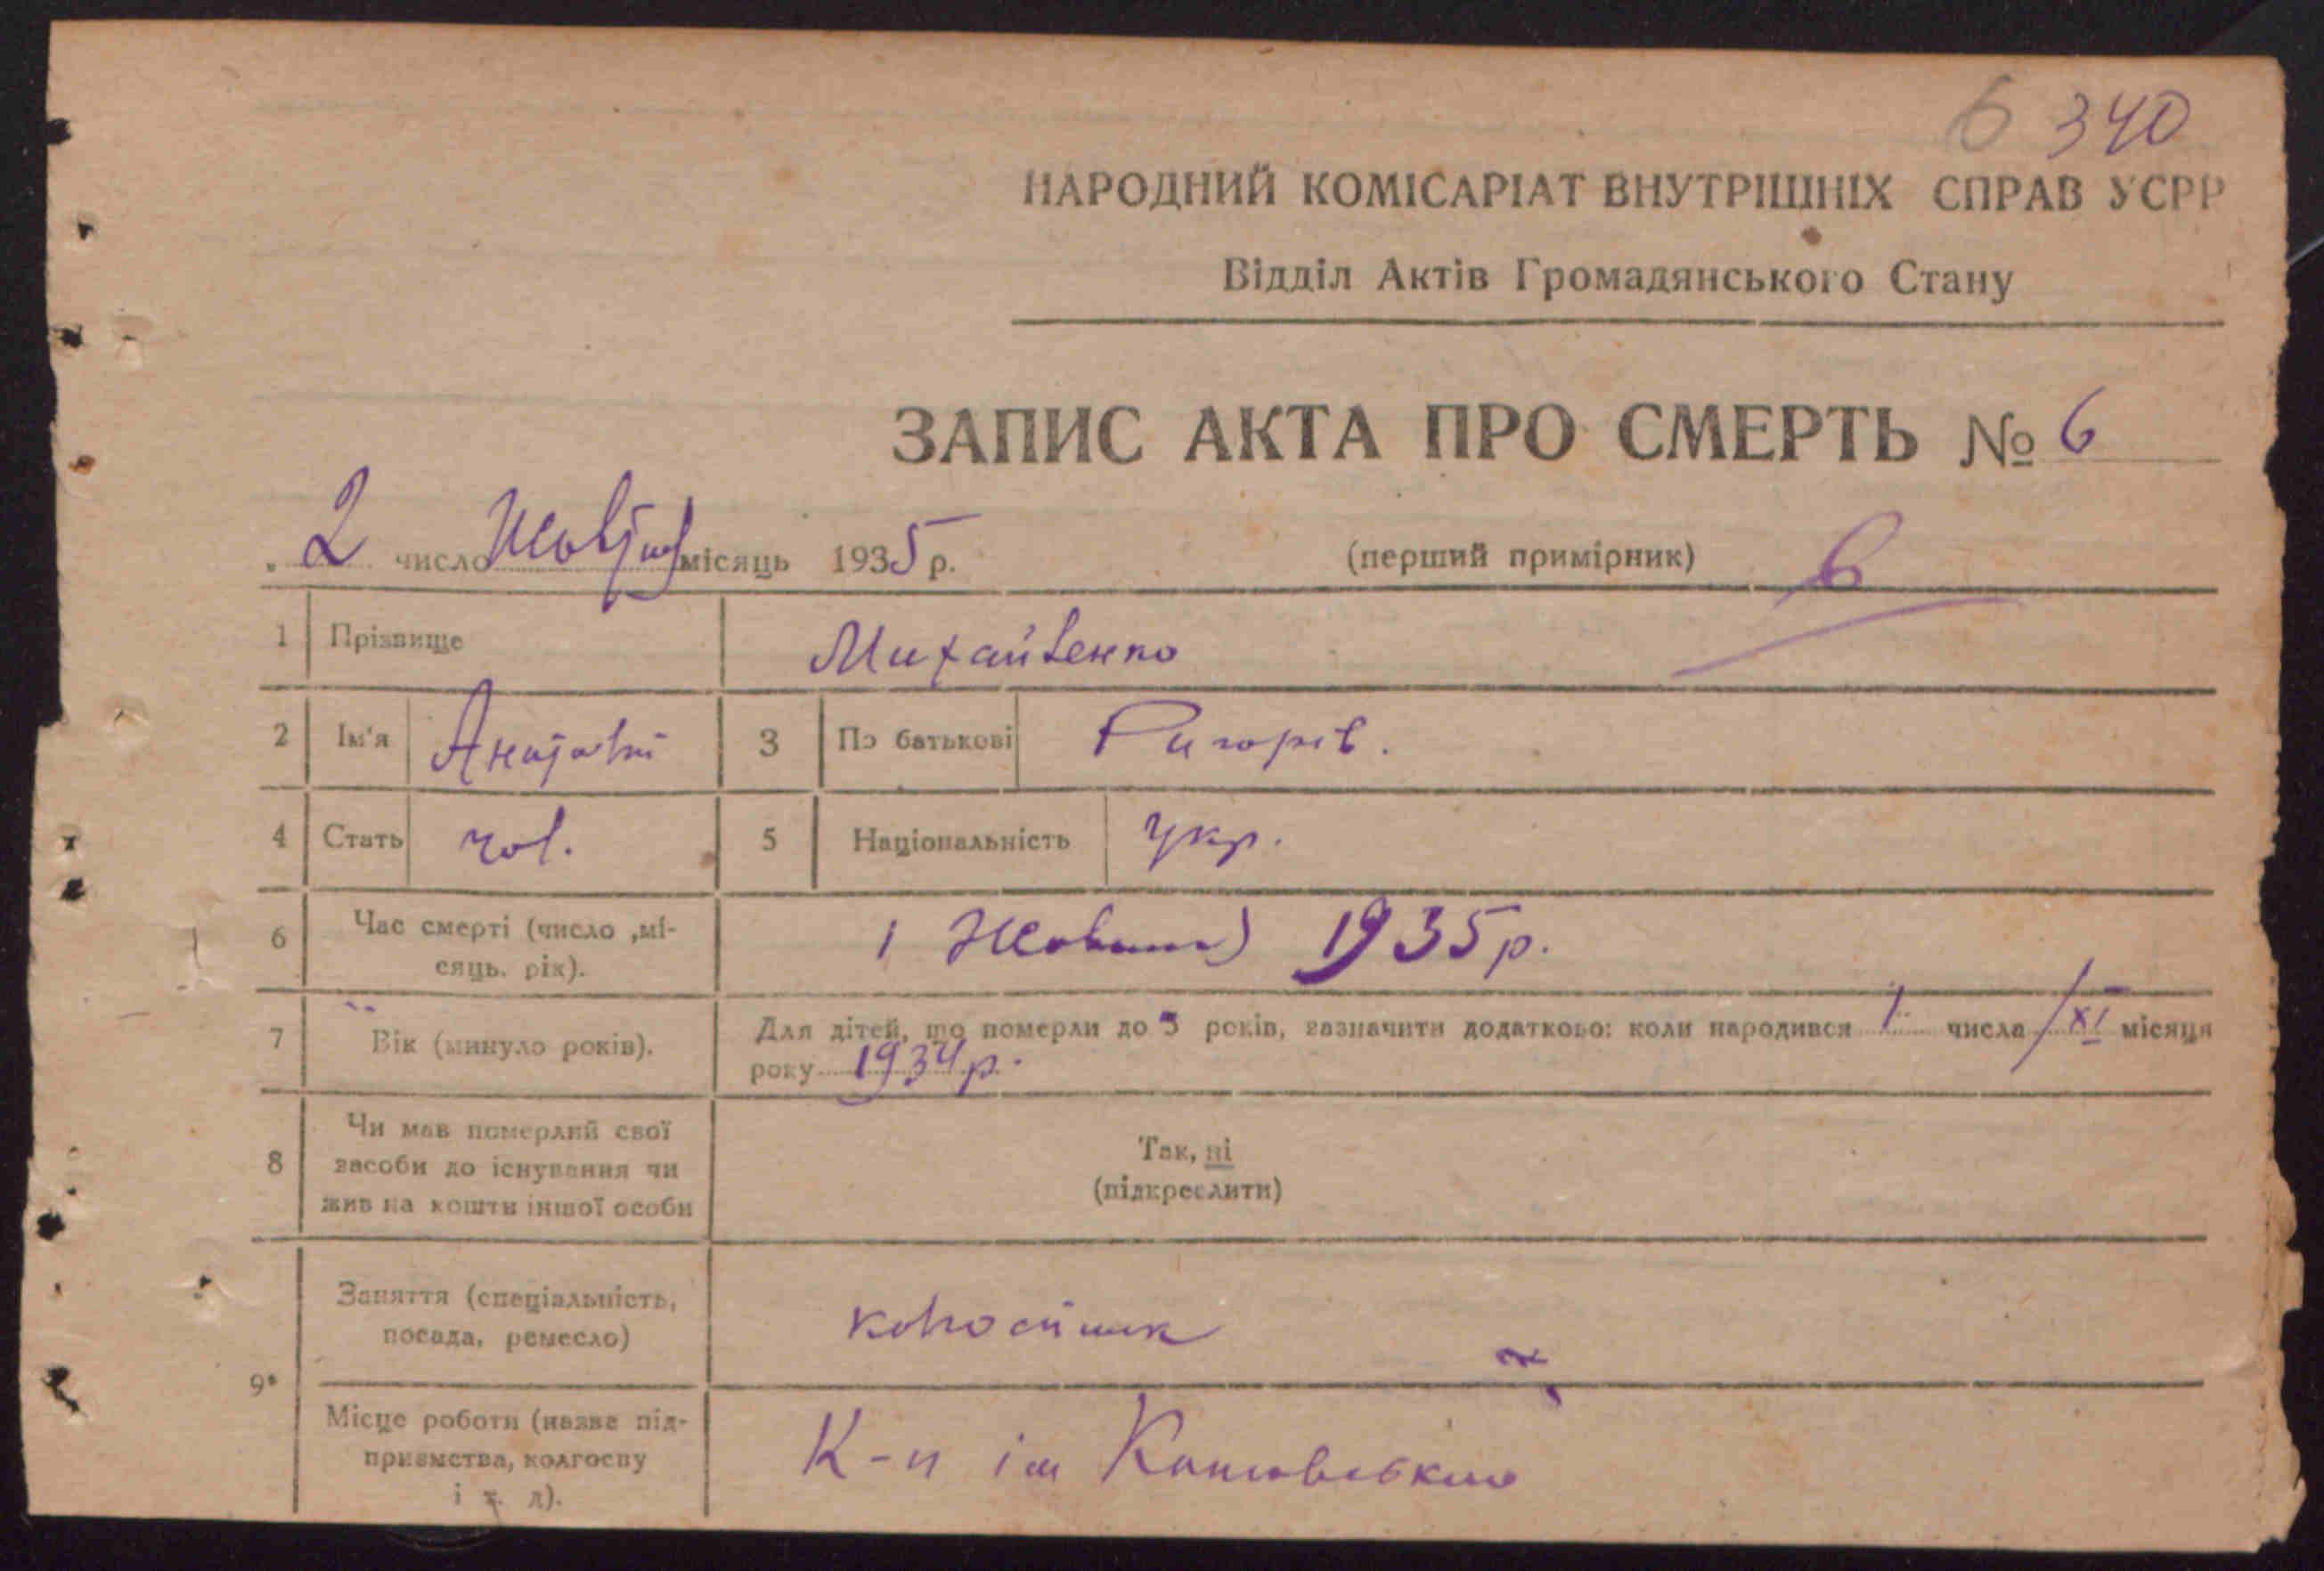 6 340
НАРОДНИЙ КОМІСАРІАТ ВНУТРІШНІХ СПРАВ УСРР
Відділ Актів Громадянського Стану
ЗАПИС АКТА ПРО СМЕРТЬ № 6
2 число місяць 1935 р. (перший примірник) 6
1 Прізвище
2 Ім'я Анатолій 3 По батькові Григорів.
4 Стать чол. 5 Національність укр.
6 Час смерті (число ,мі-
сяць, рік). 1 Жовтня 1935 р.
7 Вік (минуло років). Для дітей, що померли до 5 років, зазначити додатково: коли народився 1 числа XI місяця
року 1934 р.
8 Чи мав померлий свої
засоби до існування чи
жив на кошти іншої особи
Так, ні
(підкреслити)
9 Заняття (спеціальність,
посада, ремесло)
Місце роботи (назва під-
приємства, колгоспу
і т. д). К-п ім